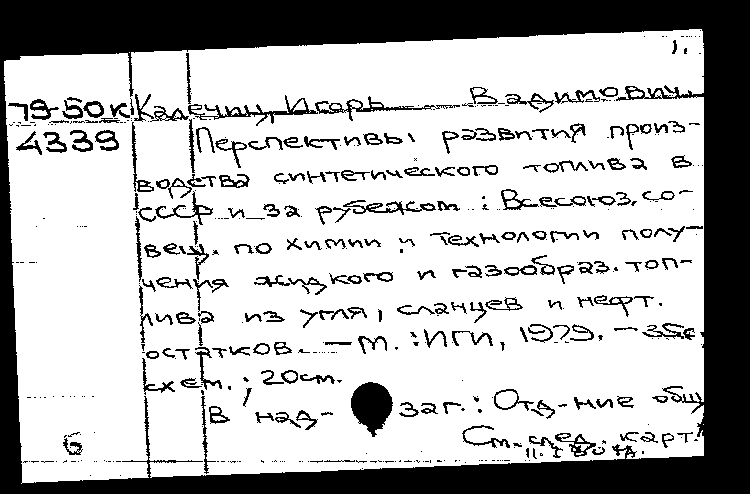 1.
79-50к Калечиц, Игорь Вадимович.
4339 Перспективы развития произ-
водства синтетического топлива в
СССР и за рубежом : Всесоюз. со-
вещ. по химии и технологии полу-
чения жидкого и газообраз. топ-
лива из угля, сланцев и нефт.
остатков. — М. : ИГИ, 1979. — 35с.
схем. ; 20см.
В над- заг. : Отд-ние общ
6 См. след. карт.